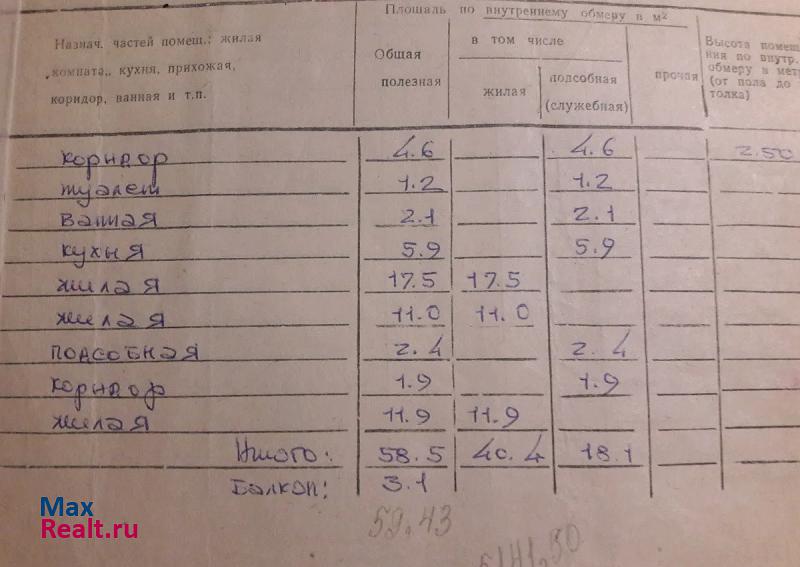 Площаль по внутреннему обмеру в м²
Назнач. частей помещ.: жилая комната, кухня, прихожая, коридор, ванная и т.п.
Общая полезная
в том числе
жилая
подсобная (служебная)
прочая
Высота помещ
ния по внутр.
обмеру в мет
(от пола до
толка)
коридор 4.6 4.6 2.50
туалет 1.2 1.2
ванная 2.1 2.1
кухня 5.9 5.9
жилая 17.5 17.5
жилая 11.0 11.0
подсобная 2.4 2.4
коридор 1.9 1.9
жилая 11.9 11.9
Итого: 58.5 40.4 18.1
Балкон: 3.1
59,43
Max
Realt.ru